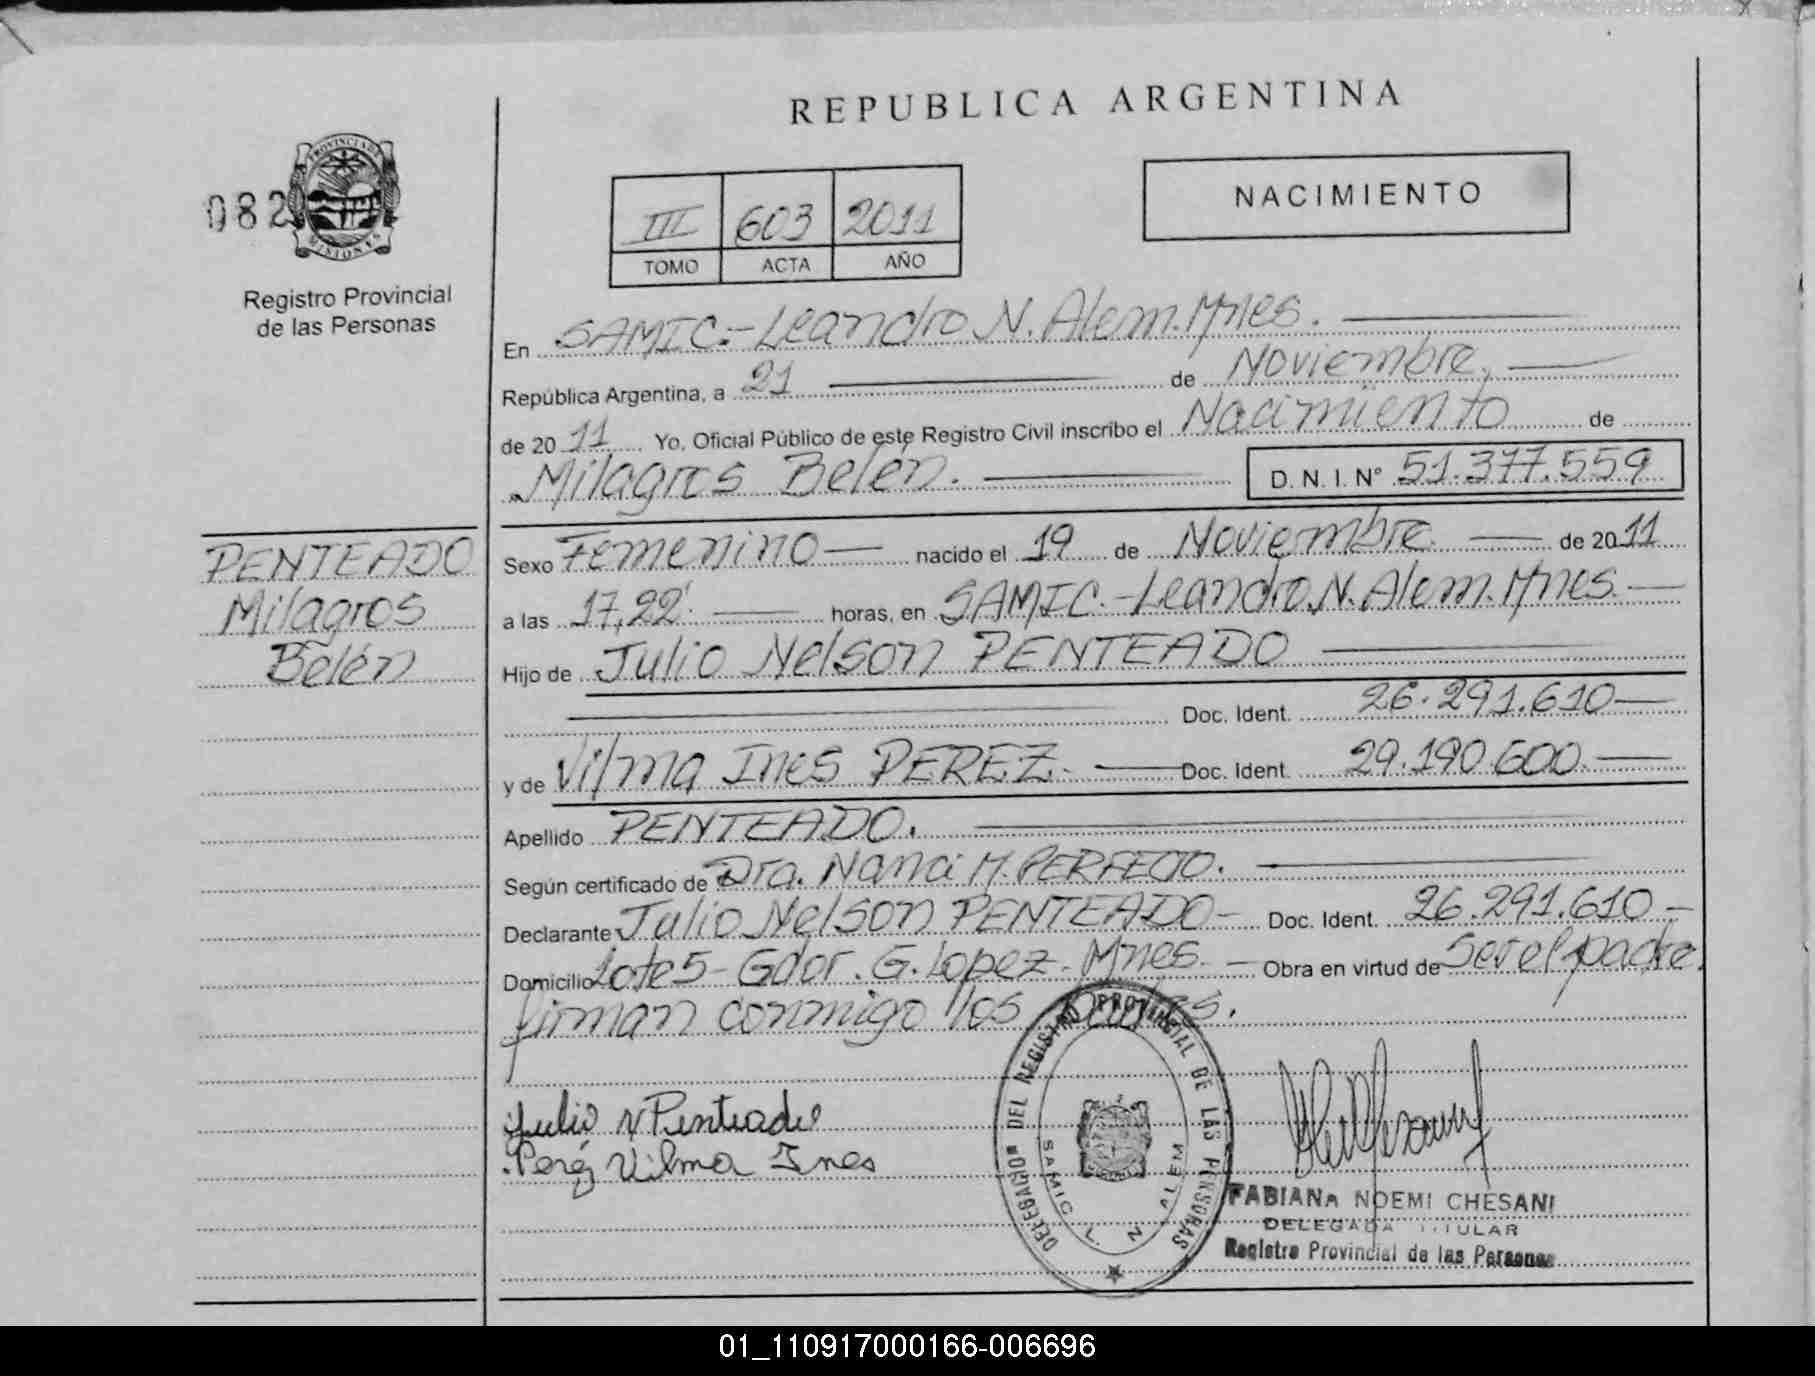 REPUBLICA ARGENTINA
NACIMIENTO
082
PROVINCIA DE
MISIONES
Registro Provincial
de las Personas
III 603 2011
TOMO ACTA AÑO
En SAMIC.- Leandro N. Alem. Mnes.
República Argentina, a 21 de Noviembre,
de 20 11 Yo, Oficial Público de este Registro Civil inscribo el Nacimiento de
Milagros Belén.
D. N. I. N° 51.377.559
PENTEADO
Milagros
Belén
Sexo Femenino nacido el 19 de Noviembre. de 20 11
a las 17,22' horas, en SAMIC.- Leandro N. Alem. Mnes.
Hijo de Julio Nelson PENTEADO
Doc. Ident. 26.291.610
y de Vilma Ines PEREZ. Doc. Ident. 29.190.600.
Apellido PENTEADO.
Según certificado de Dra. Nanci M. PERFECTO.
Declarante Julio Nelson PENTEADO Doc. Ident. 26.291.610
Domicilio Lote 5 - Gdor. G. Lopez - Mnes. Obra en virtud de Ser el padre.
firman conmigo los padres.
Julio N Penteado
Perez Vilma Ines
DELEGACION DEL REGISTRO PROVINCIAL DE LAS PERSONAS
SAMIC L. N. ALEM
FABIANA NOEMI CHESANI
DELEGADA TITULAR
Registro Provincial de las Personas
01_110917000166-006696